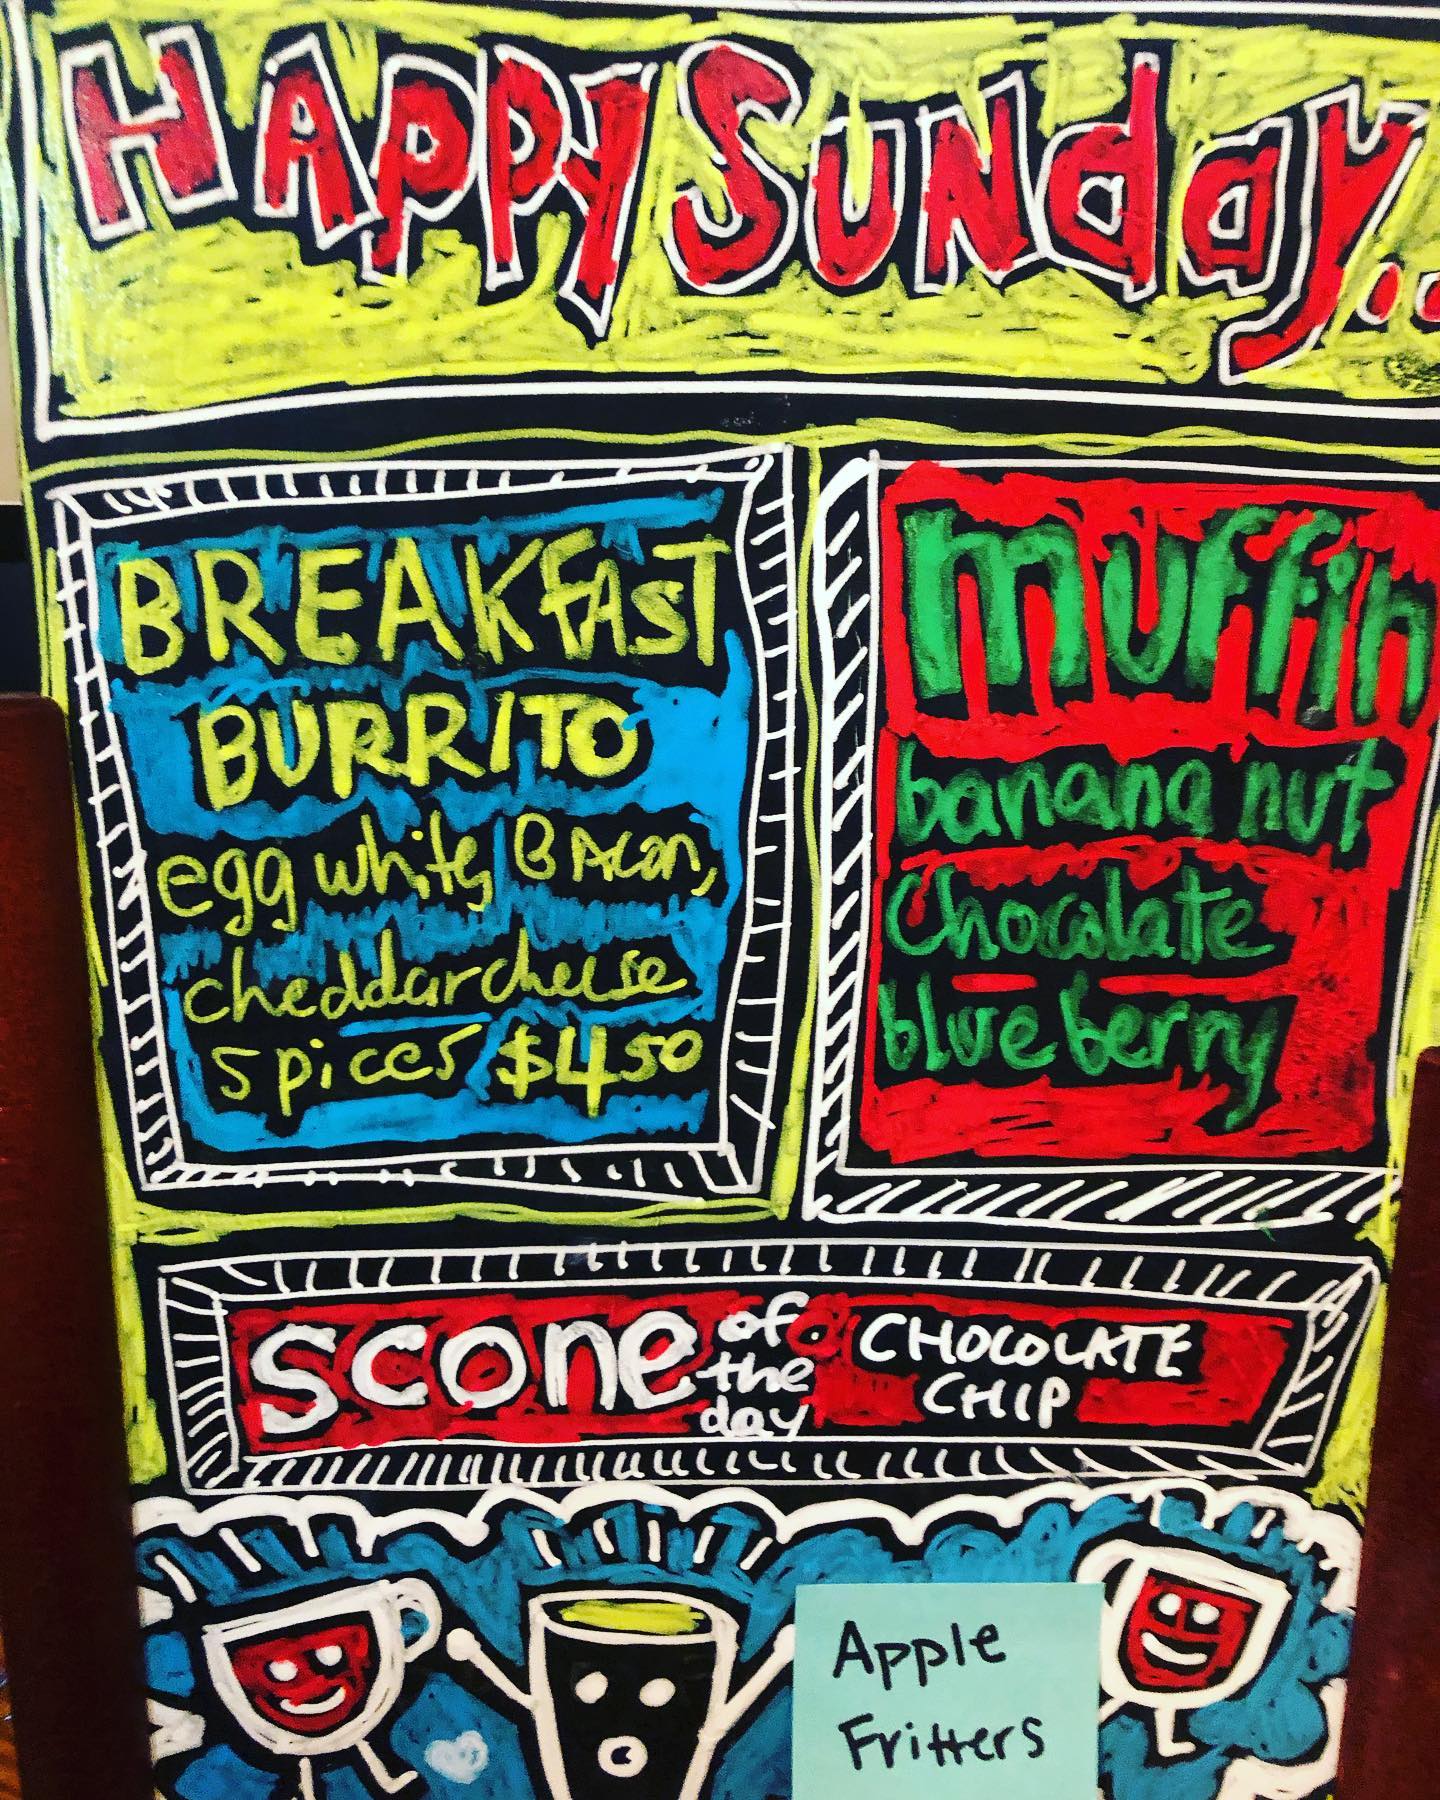 HAppy Sunday..
BREAKFAST
BURRITO
egg white, BAcon,
cheddar cheese
spices $4.50
muffin
banana nut
Chocolate
blueberry
scone of the day CHOCOLATE CHIP
Apple
Fritters